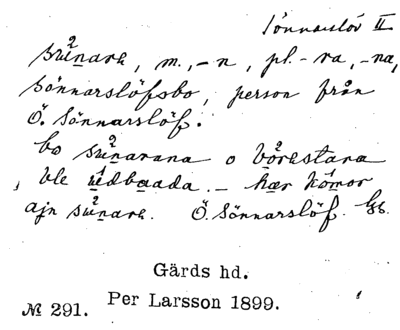 Sönnarslöv II
sŭnare, m., -n, pl. -ra, -na,
sönnarslöfsbo, person från
Ö. Sönnarslöf.
bo sŭnarana o bòrestara
ble udbaada. - hær kömor
ajn sŭnare. Ö. Sönnarslöf.
Gärds hd.
№ 291. Per Larsson 1899.